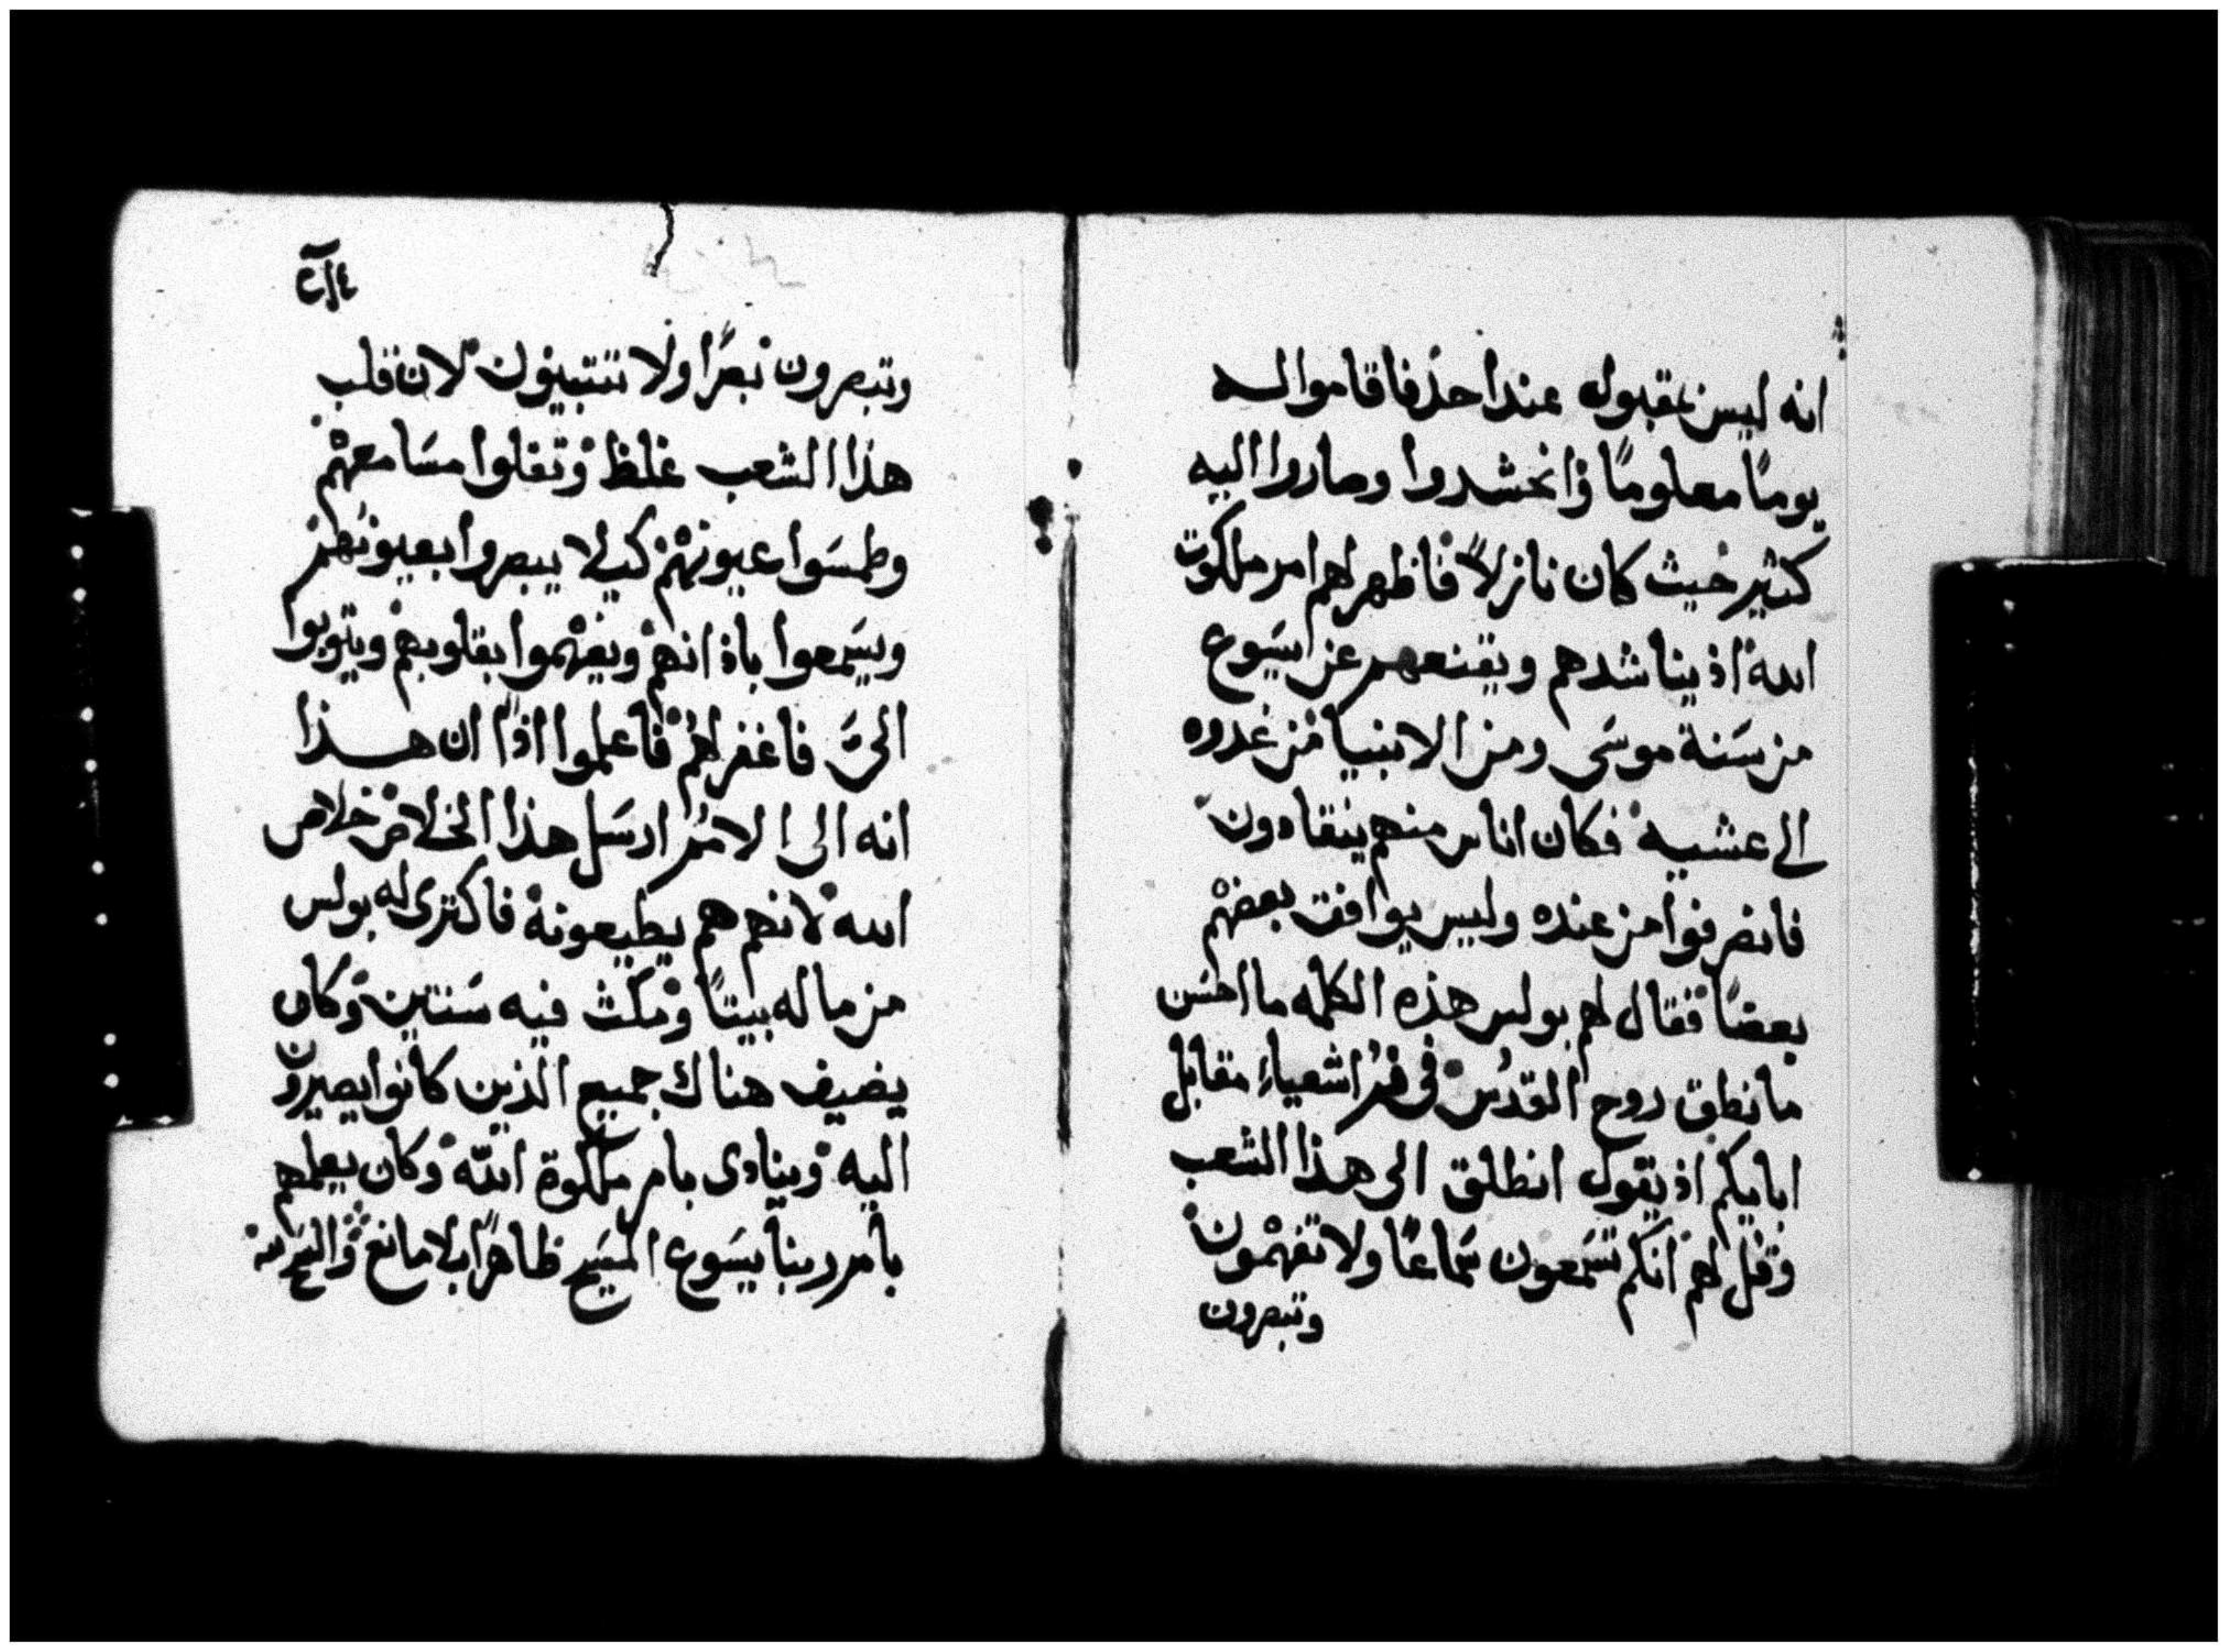 انه ليس بمقبول عند احد فاقاموا له
يومًا معلومًا فانحشدوا وصاروا اليه
كثير حيث كان نازلاً فاظهر لهم امر ملكوت
الله اذ يناشدهم ويقنعهم عن ايسَوع
من سَنة موسَى ومن الانبيا من غدوه
الى عشيه فكان اناس منهم ينقادون
فانصرفوا من عنده وليس يوافق بعضهْم
بعضًا فقال لهم بولس هذه الكلمه ما احسَن
ما نطق روح القدُس في فم اشعياء مقابل
ابايكم اذ يقول انطلق الى هذا الشعب
وقل لهم انكم تسَمعون سَماعًا ولا تفهْمون
وتبصرون
وتبصرون بصرًا ولا تتبينون لان قلب
هذا الشعب غلظ وثقلوا مسَامعهْم
وطمسَوا عيونهْم كيلا يبصروا بعيونهم
ويسَمعوا باذانهم ويفهْموا بقلوبهم ويتوبوا
الىَّ فاغفر لهم فاعلموا اذًا ان هذا
انه الى الامم ارسَل هذا الخلاص خلاص
الله لانهم هم يطيعونه فاكترى له بولس
من ماله بيتًا ومكث فيه سَنتين وكان
يضيف هناك جميع الذين كانوا يصيرون
اليه وينادى بامر ملكوة الله وكان يعلمهم
بامر ربنا يسَوع المسَيح ظاهرًا بلا مانع